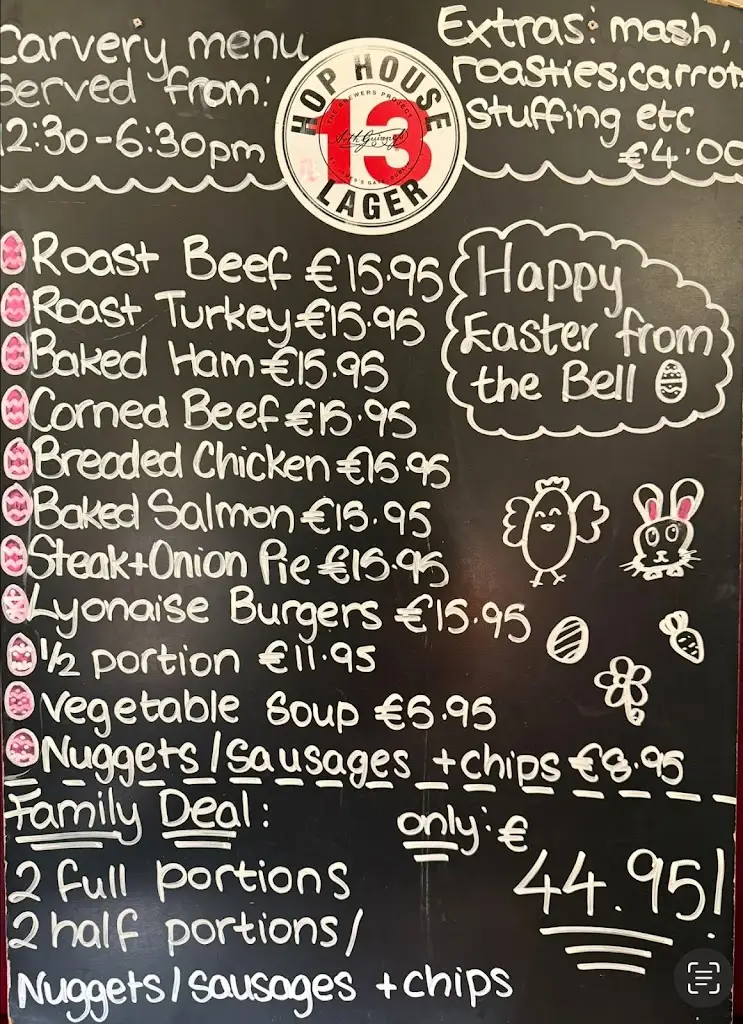 Carvery menu
served from:
12:30-6:30pm
Extras: mash,
roasties, carrots
stuffing etc
€4.00
HOP HOUSE
THE BREWERS PROJECT
13
LAGER
Roast Beef €15.95
Roast Turkey €15.95
Baked Ham €15.95
Corned Beef €15.95
Breaded Chicken €15.95
Baked Salmon €15.95
Steak+Onion Pie €15.95
Lyonaise Burgers €15.95
1/2 portion €11.95
Vegetable Soup €5.95
Nuggets/Sausages +chips €8.95
Happy
Easter from
the Bell
Family Deal:
only: €
44.95!
2 full portions
2 half portions/
Nuggets/sausages +chips